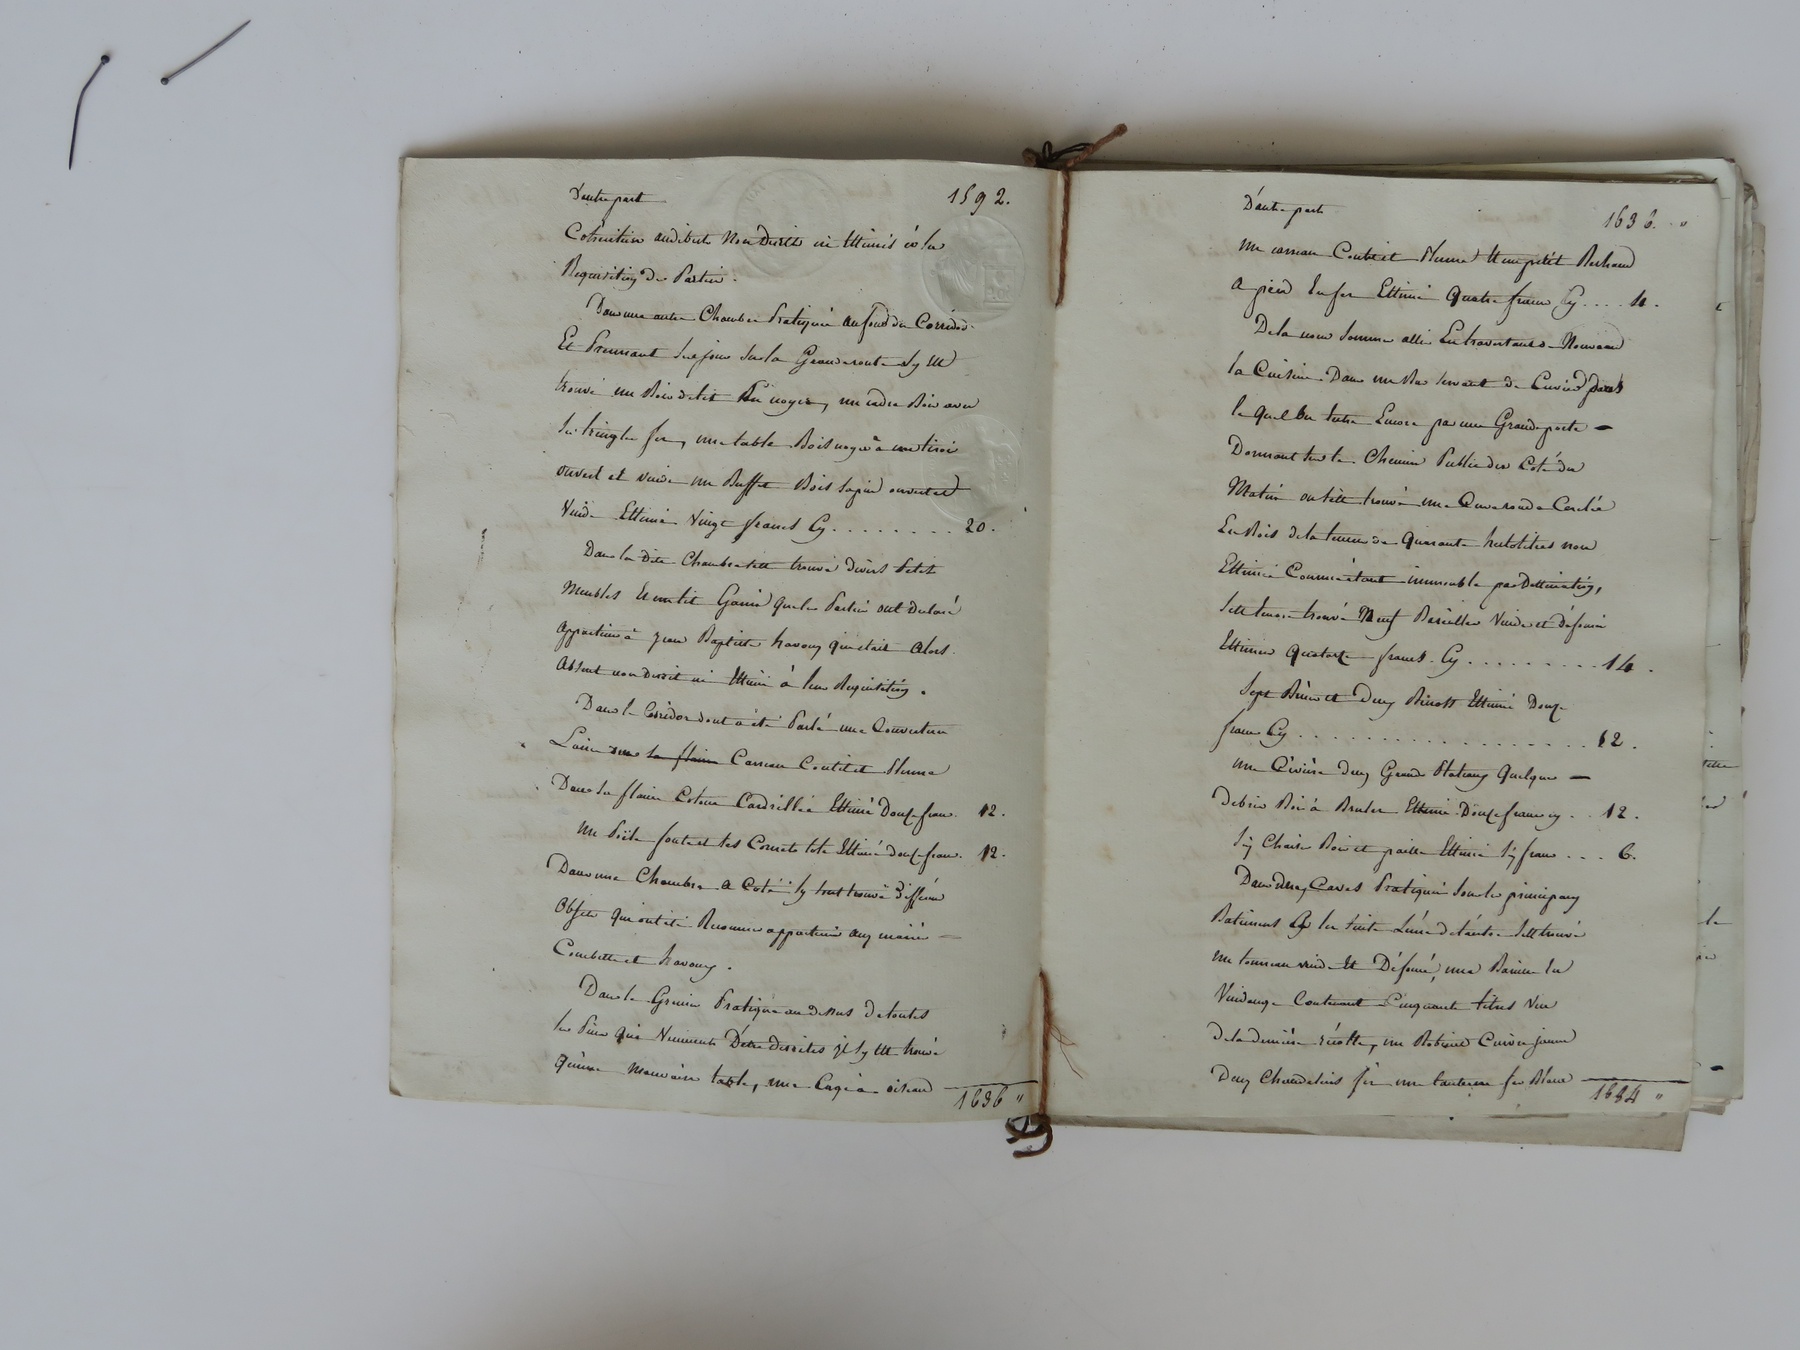 D'autre part 1592.
Cotruition audibute Non Decrite ni Estimés à la
Requisition des Parties.
Dans une autre Chambre Pratiquée au fond du Corridor
Et Prennant Ses jours Sur la Grande route Sy est
trouvé un Bois de lit Bois noyer, un cadre Bois avec
Sa tringle fer, une table Bois noyer à un tiroir
ouvert et vuide un Buffet Bois Sapin ouvert et
Vuide Estimé Vingt francs Cy . . . . . . . . 20.
Dans la Dite Chambre s'est trouvé divers Petits
Meubles Et un lit Garni que les Parties ont Declaré
appartenir à Jean Baptiste travoux qui était Alors
Absent non decrit ni Estimé à leur Requisition.
Dans le Corridor dont a été Parlé une Couverture
Laine Carreau Coutil et Plume
Dans sa flaine Cotone Cardrillée Estimé Douze francs. 12.
un Poële fonte et ses Cornets tole Estimé douze francs. 12.
Dans une Chambre a Coté Sy sont trouvé différens
Objets qui ont été Reconnus appartenir aux mariés —
Combette et travoux.
Dans le Grenier Pratiqué au dessus de toutes
les Pièces qui Viennent D'être décrites il sy est trouvé
qu'une Mauvaise table, une Cage à oiseau
1636 "
D'autre part 1636. "
un carreau Coutil et Plume Et un petit Rechaud
a pied En fer Estimé Quatre francs Cy . . . . 4.
De la nous Sommes allés En traversant de Nouveau
la Cuisine Dans un Bas Servant de Cuvier dans
le quel On Entre Encore par une Grande porte —
Donnant Sur le Chemin Public du Coté du
Matin où s'est trouvé une Cuve ronde Cerclée
En Bois de la tenue de Quarante hectolitres non
Estimée Comme étant immeuble par Destination,
s'est Encore trouvé Neuf Barilles Vuides et Défoncé
Estimées Quatorze francs. Cy . . . . . . . . . 14.
Sept Bennes et Deux Benots Estimé Douze
francs Cy . . . . . . . . . . . . . . . . . . 12.
une Civière deux Grands Plateaux Quelques —
Debris Bois à Bruler Estimé Douze francs cy . . 12.
Six Chaises Bois et paille Estimé Six francs . . . 6.
Dans deux Caves Pratiquées Sous les principaux
Batiments à la Suite L'une de l'autre s'est trouvé
un tonneau vuide Et Défoncé, une Barrique
Vendange Contenant Cinquante litres Vin
de la dernière récolte, un Robinet Cuivre jaune
Deux Chandeliers fer une lanterne fer Blanc
1684 "